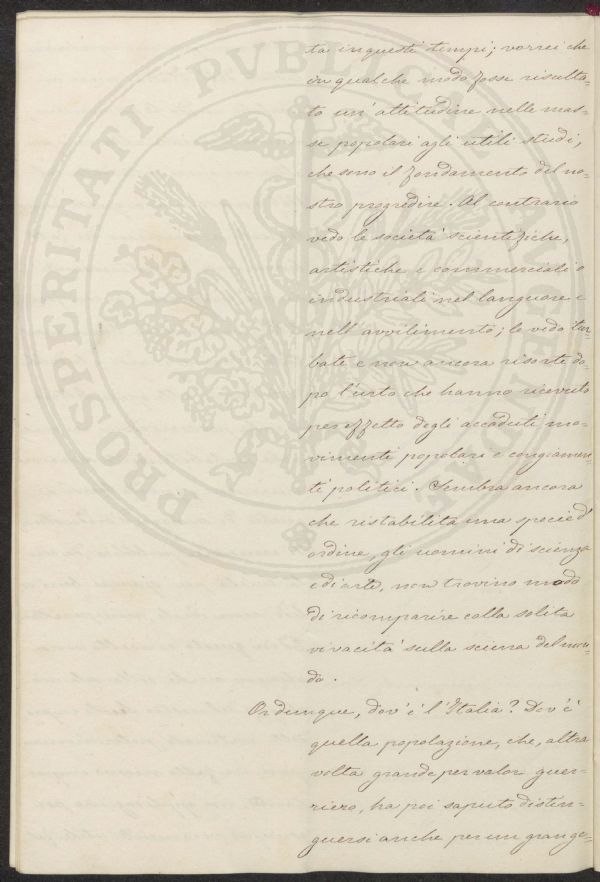 ta in questi tempi; vorrei che
in qualche modo fosse risulta-
to un' attitudine nelle mas-
se popolari agli utili studi,
che sono il fondamento del no-
stro progredire. Al contrario
vedo le società scientifiche,
artistiche e commerciali o
industriali nel languore e
nell' avvilimento; le vedo tur-
bate e non ancora risorte do-
po l'urto che hanno ricevuto
per effetto degli accaduti mo-
vimenti popolari e congiamen-
ti politici. Sembra ancora
che ristabilita una specie d'
ordine, gli uomini di scienza
e di arte, non trovino modo
di ricomparire colla solita
vivacità sulla sciena del mon-
do.
Or dunque, dov' è l'Italia? Dov' è
quella popolazione, che, altra
volta grande per valor guer-
riero, ha poi saputo distin-
guersi anche per un gran ge-
PROSPERITATI PVBLICAE AVGENDAE